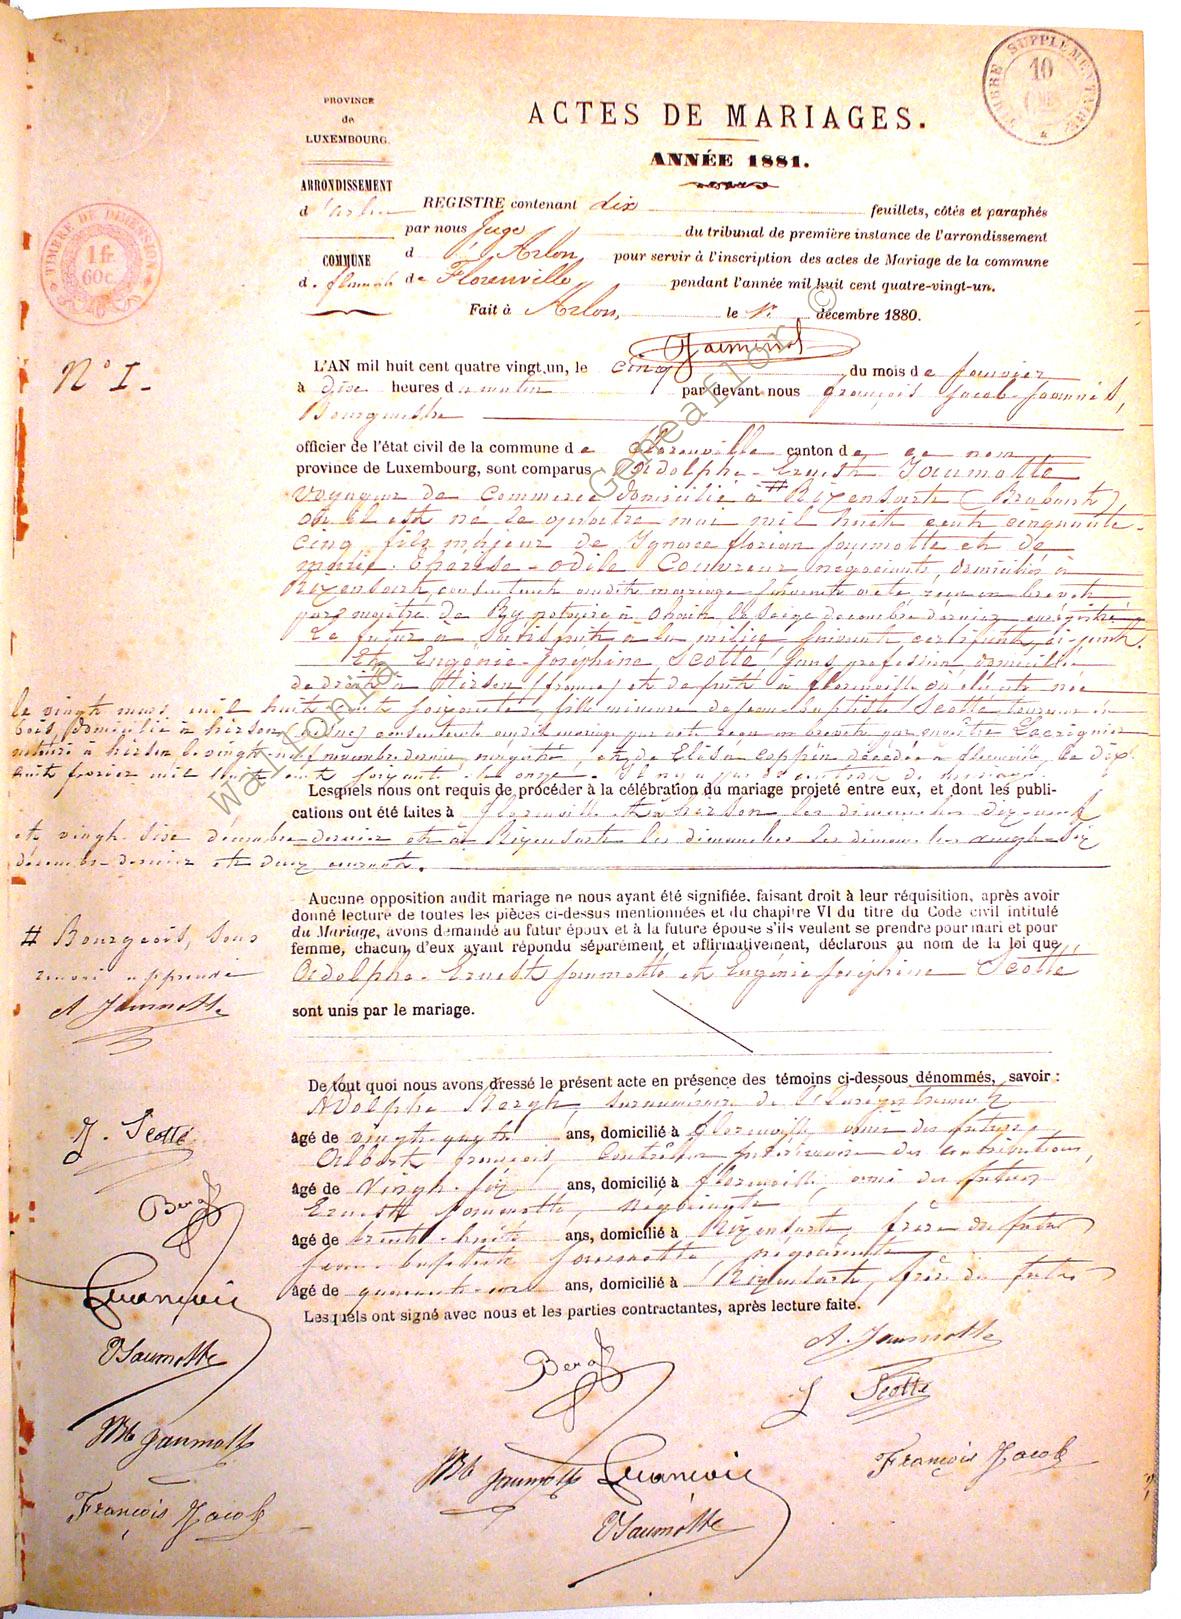 PROVINCE
de
LUXEMBOURG.
ARRONDISSEMENT
d'Arlon
COMMUNE
de
TIMBRE SUPPLÉMENTAIRE
10
TIMBRE DE DIMENSION
1 fr.
60 c.
ACTES DE MARIAGES.
ANNÉE 1881.
REGISTRE contenant dix feuillets, côtés et paraphés
par nous Juge du tribunal de première instance de l'arrondissement
d'Arlon, pour servir à l'inscription des actes de Mariage de la commune
de Florenville pendant l'année mil huit cent quatre-vingt-un.
Fait à Arlon, le 1r décembre 1880.
N° I -
L'AN mil huit cent quatre vingt un, le cinq du mois de janvier
à dix heures du matin par devant nous françois Jacob
Bourgmestre
officier de l'état civil de la commune de Florenville canton de ce nom
province de Luxembourg, sont comparus Adolphe-Ernest Jaumotte
voyageur de commerce domicilié à # Rixensart (Brabant)
où il est né le quatre mai mil huit cent cinquante-
cinq fils majeur de Ignace florian Jaumotte et de
marie-thérèse-odile Couvreur négociants, domiciliés à
Rixensart, consentants audit mariage suivant acte reçu en brevet
par maître de Ry notaire à Ohain le seize décembre dernier enregistré
Le futur a satisfait à la milice suivant certificat ci-joint.
Et Eugénie-Joséphine Scotté, sans profession, domiciliée
de droit à Hirson (france) et de fait à florenville où elle est née
le vingt mars mil huit cent soixante, fille mineure de jean-baptiste Scotté tourneur en
bois, domicilié à hirson (france) consentant audit mariage par acte reçu en brevet par maître
notaire à hirson le vingt neuf novembre dernier, enregistré, et de Elisa décédée à florenville, le dix
huit février mil huit cent soixante et onze. Il n'y a pas de contrat de mariage.
Lesquels nous ont requis de procéder à la célébration du mariage projeté entre eux, et dont les publi-
cations ont été faites à florenville et à hirson les dimanches dix-neuf
et vingt-six décembre dernier et à Rixensart les dimanches les dimanches vingt-six
décembre dernier et deux courant.
Aucune opposition audit mariage ne nous ayant été signifiée, faisant droit à leur réquisition, après avoir
donné lecture de toutes les pièces ci-dessus mentionnées et du chapitre VI du titre du Code civil intitulé
du Mariage, avons demandé au futur époux et à la future épouse s'ils veulent se prendre pour mari et pour
femme, chacun d'eux ayant répondu séparément et affirmativement, déclarons au nom de la loi que
Adolphe-Ernest Jaumotte et Eugénie Joséphine Scotté
sont unis par le mariage.
# Bourgeois, sous
renvoi approuvé
A. Jaumotte
De tout quoi nous avons dressé le présent acte en présence des témoins ci-dessous dénommés, savoir :
Adolphe Bergh, surnuméraire de l'Enregistrement
âgé de vingt-quatre ans, domicilié à florenville ami des futurs
Albert françois, Contrôleur intérimaire des contributions,
âgé de vingt-six ans, domicilié à florenville, ami des futurs
Ernest Jaumotte, négociant
âgé de trente-huit ans, domicilié à Rixensart, frère du futur
jean baptiste Jaumotte, négociant
âgé de ans, domicilié à Rixensart, frère du futur
Lesquels ont signé avec nous et les parties contractantes, après lecture faite.
J. Scotté
Bergh
françois
E Jaumotte
JBte Jaumotte
François Jacob
A. Jaumotte
Bergh
J Scotté
JBte Jaumotte
françois
François Jacob
E Jaumotte
wallonia Geneaflor ©